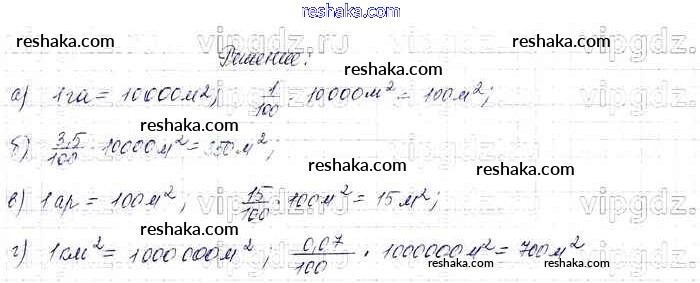 reshaka.com
reshaka.com Решение: reshaka.com
reshaka.com
а) 1га = 10000м2; 1/100 · 10000м² = 100м²;
reshaka.com
б) 3,5/100 · 10000м² = 350м²;
reshaka.com
reshaka.com
в) 1ар = 100м²; 15/100 · 100м² = 15м²;
reshaka.com
г) 1км² = 1000000м²; 0,07/100 · 1000000м² = 700м²
reshaka.com reshaka.com